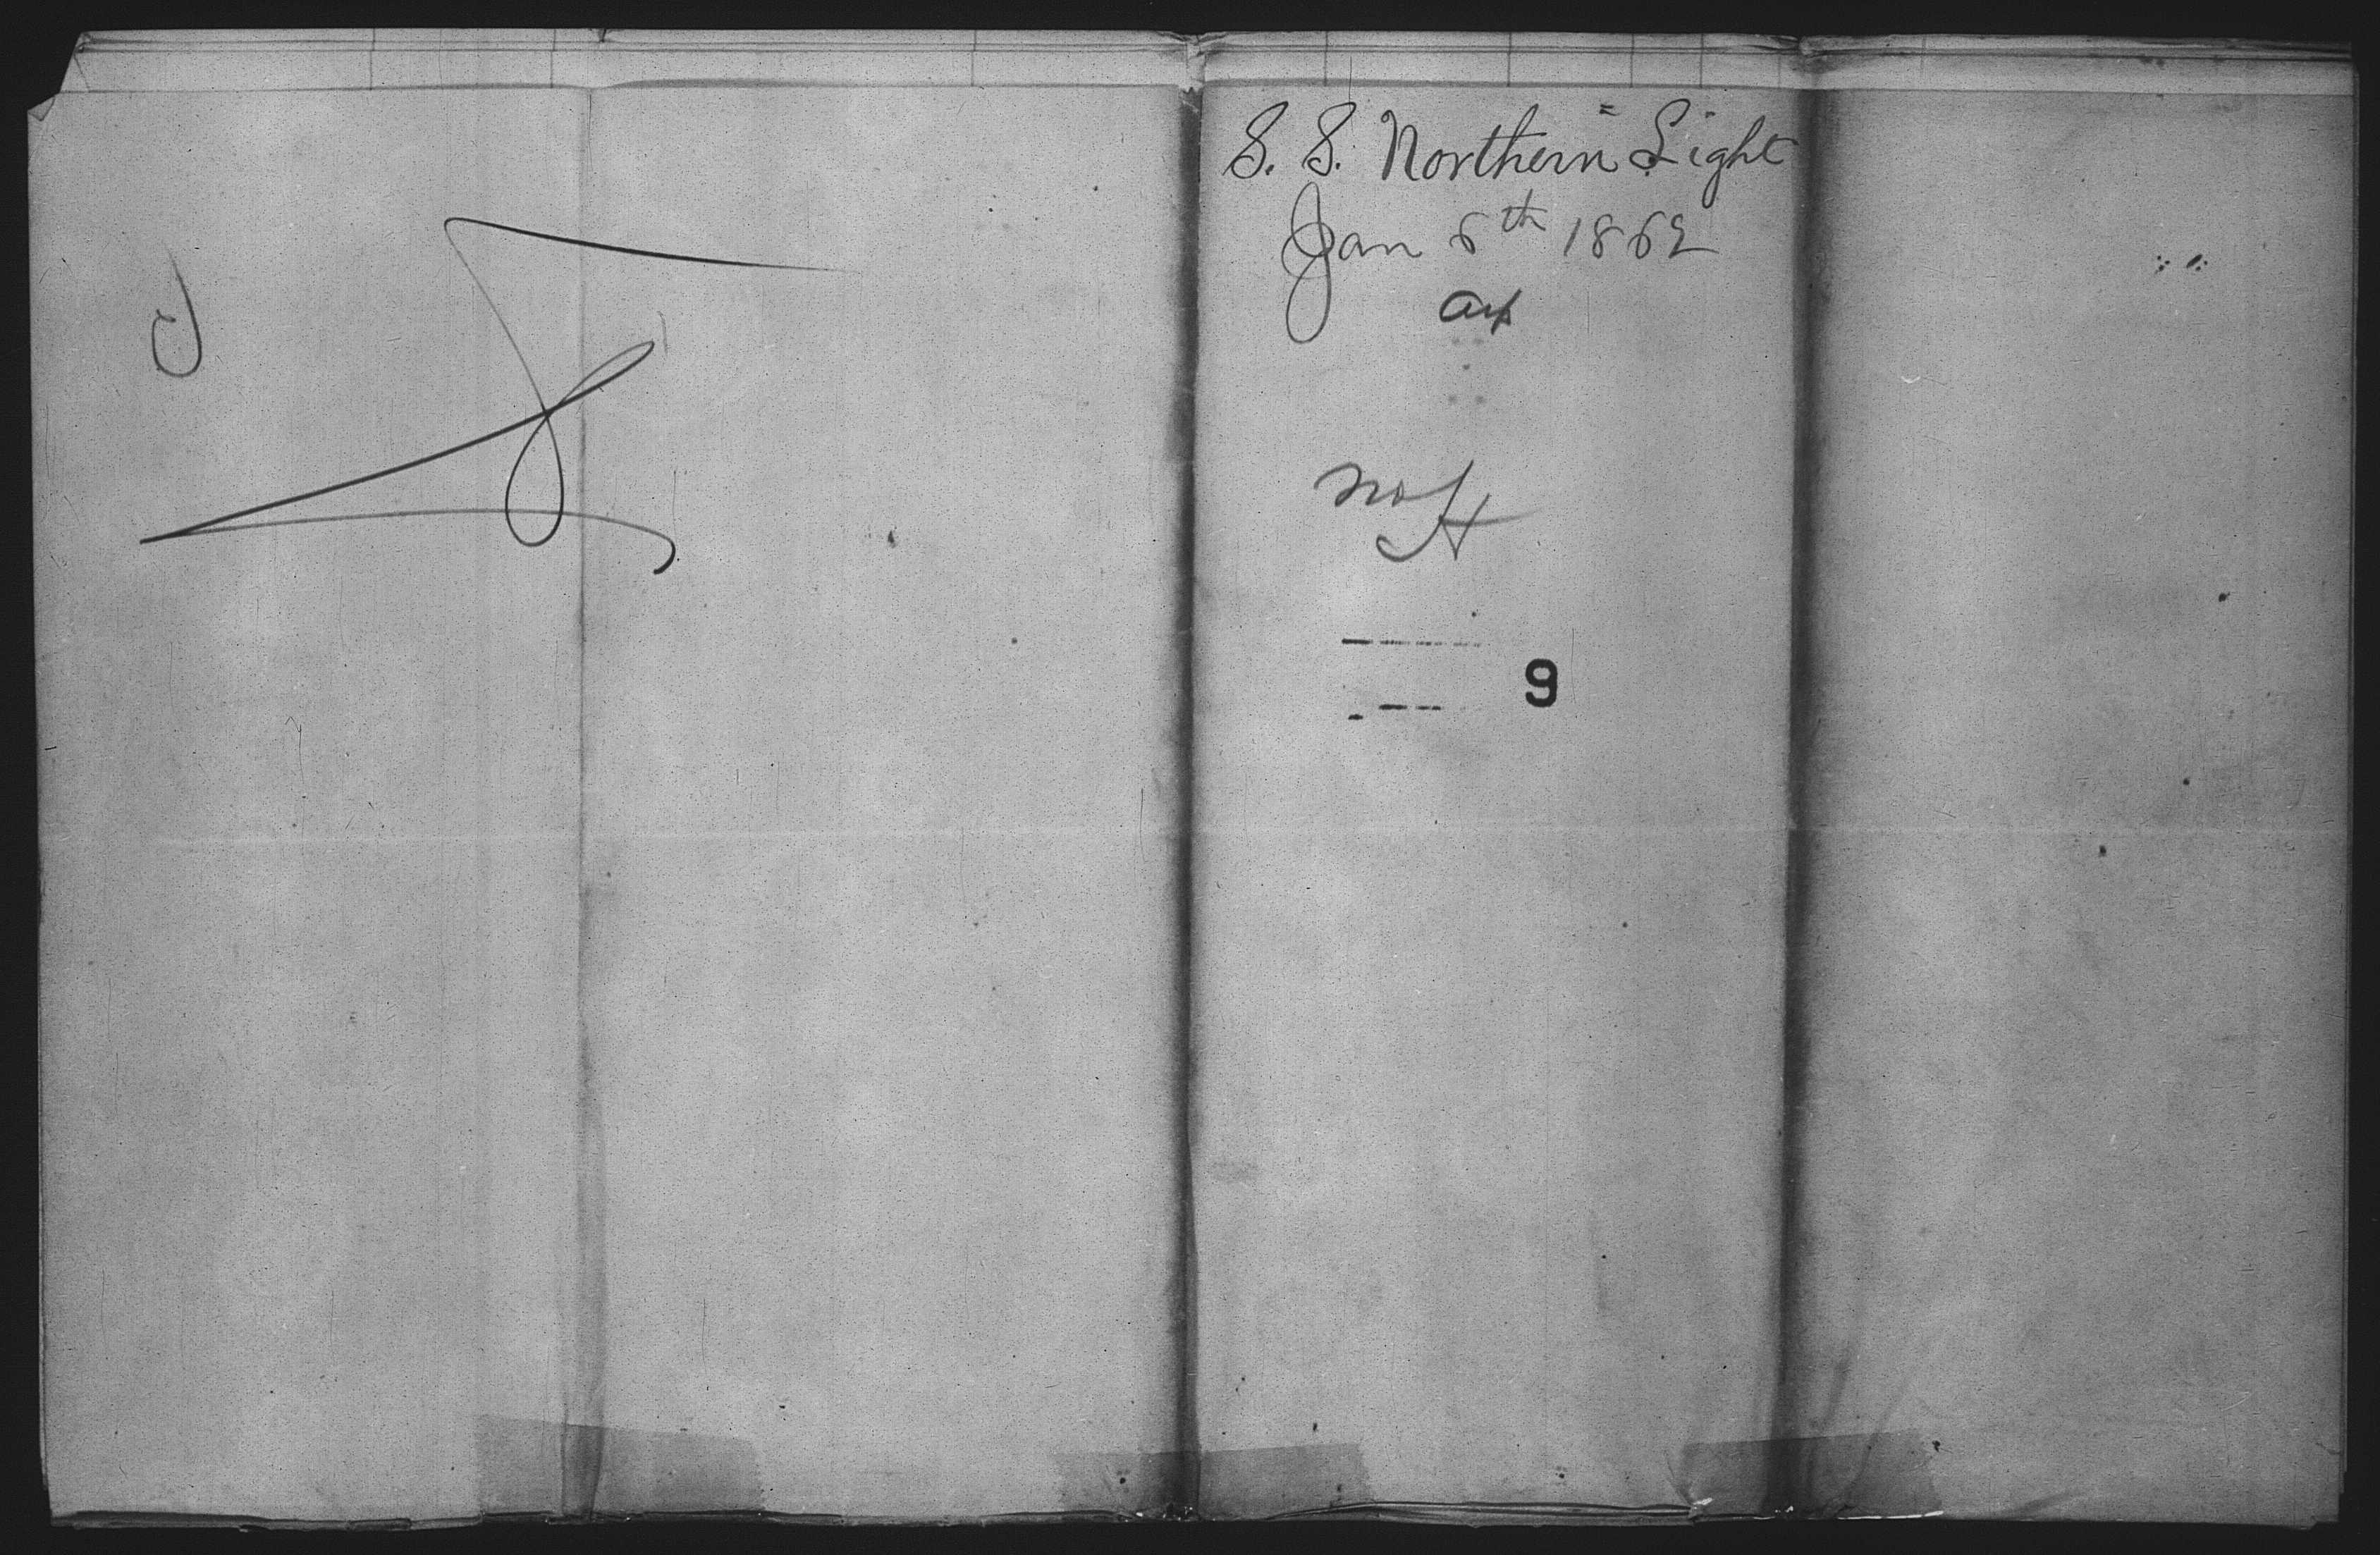 S. S. Northern Light
Jan 6th 1862
No 4
9